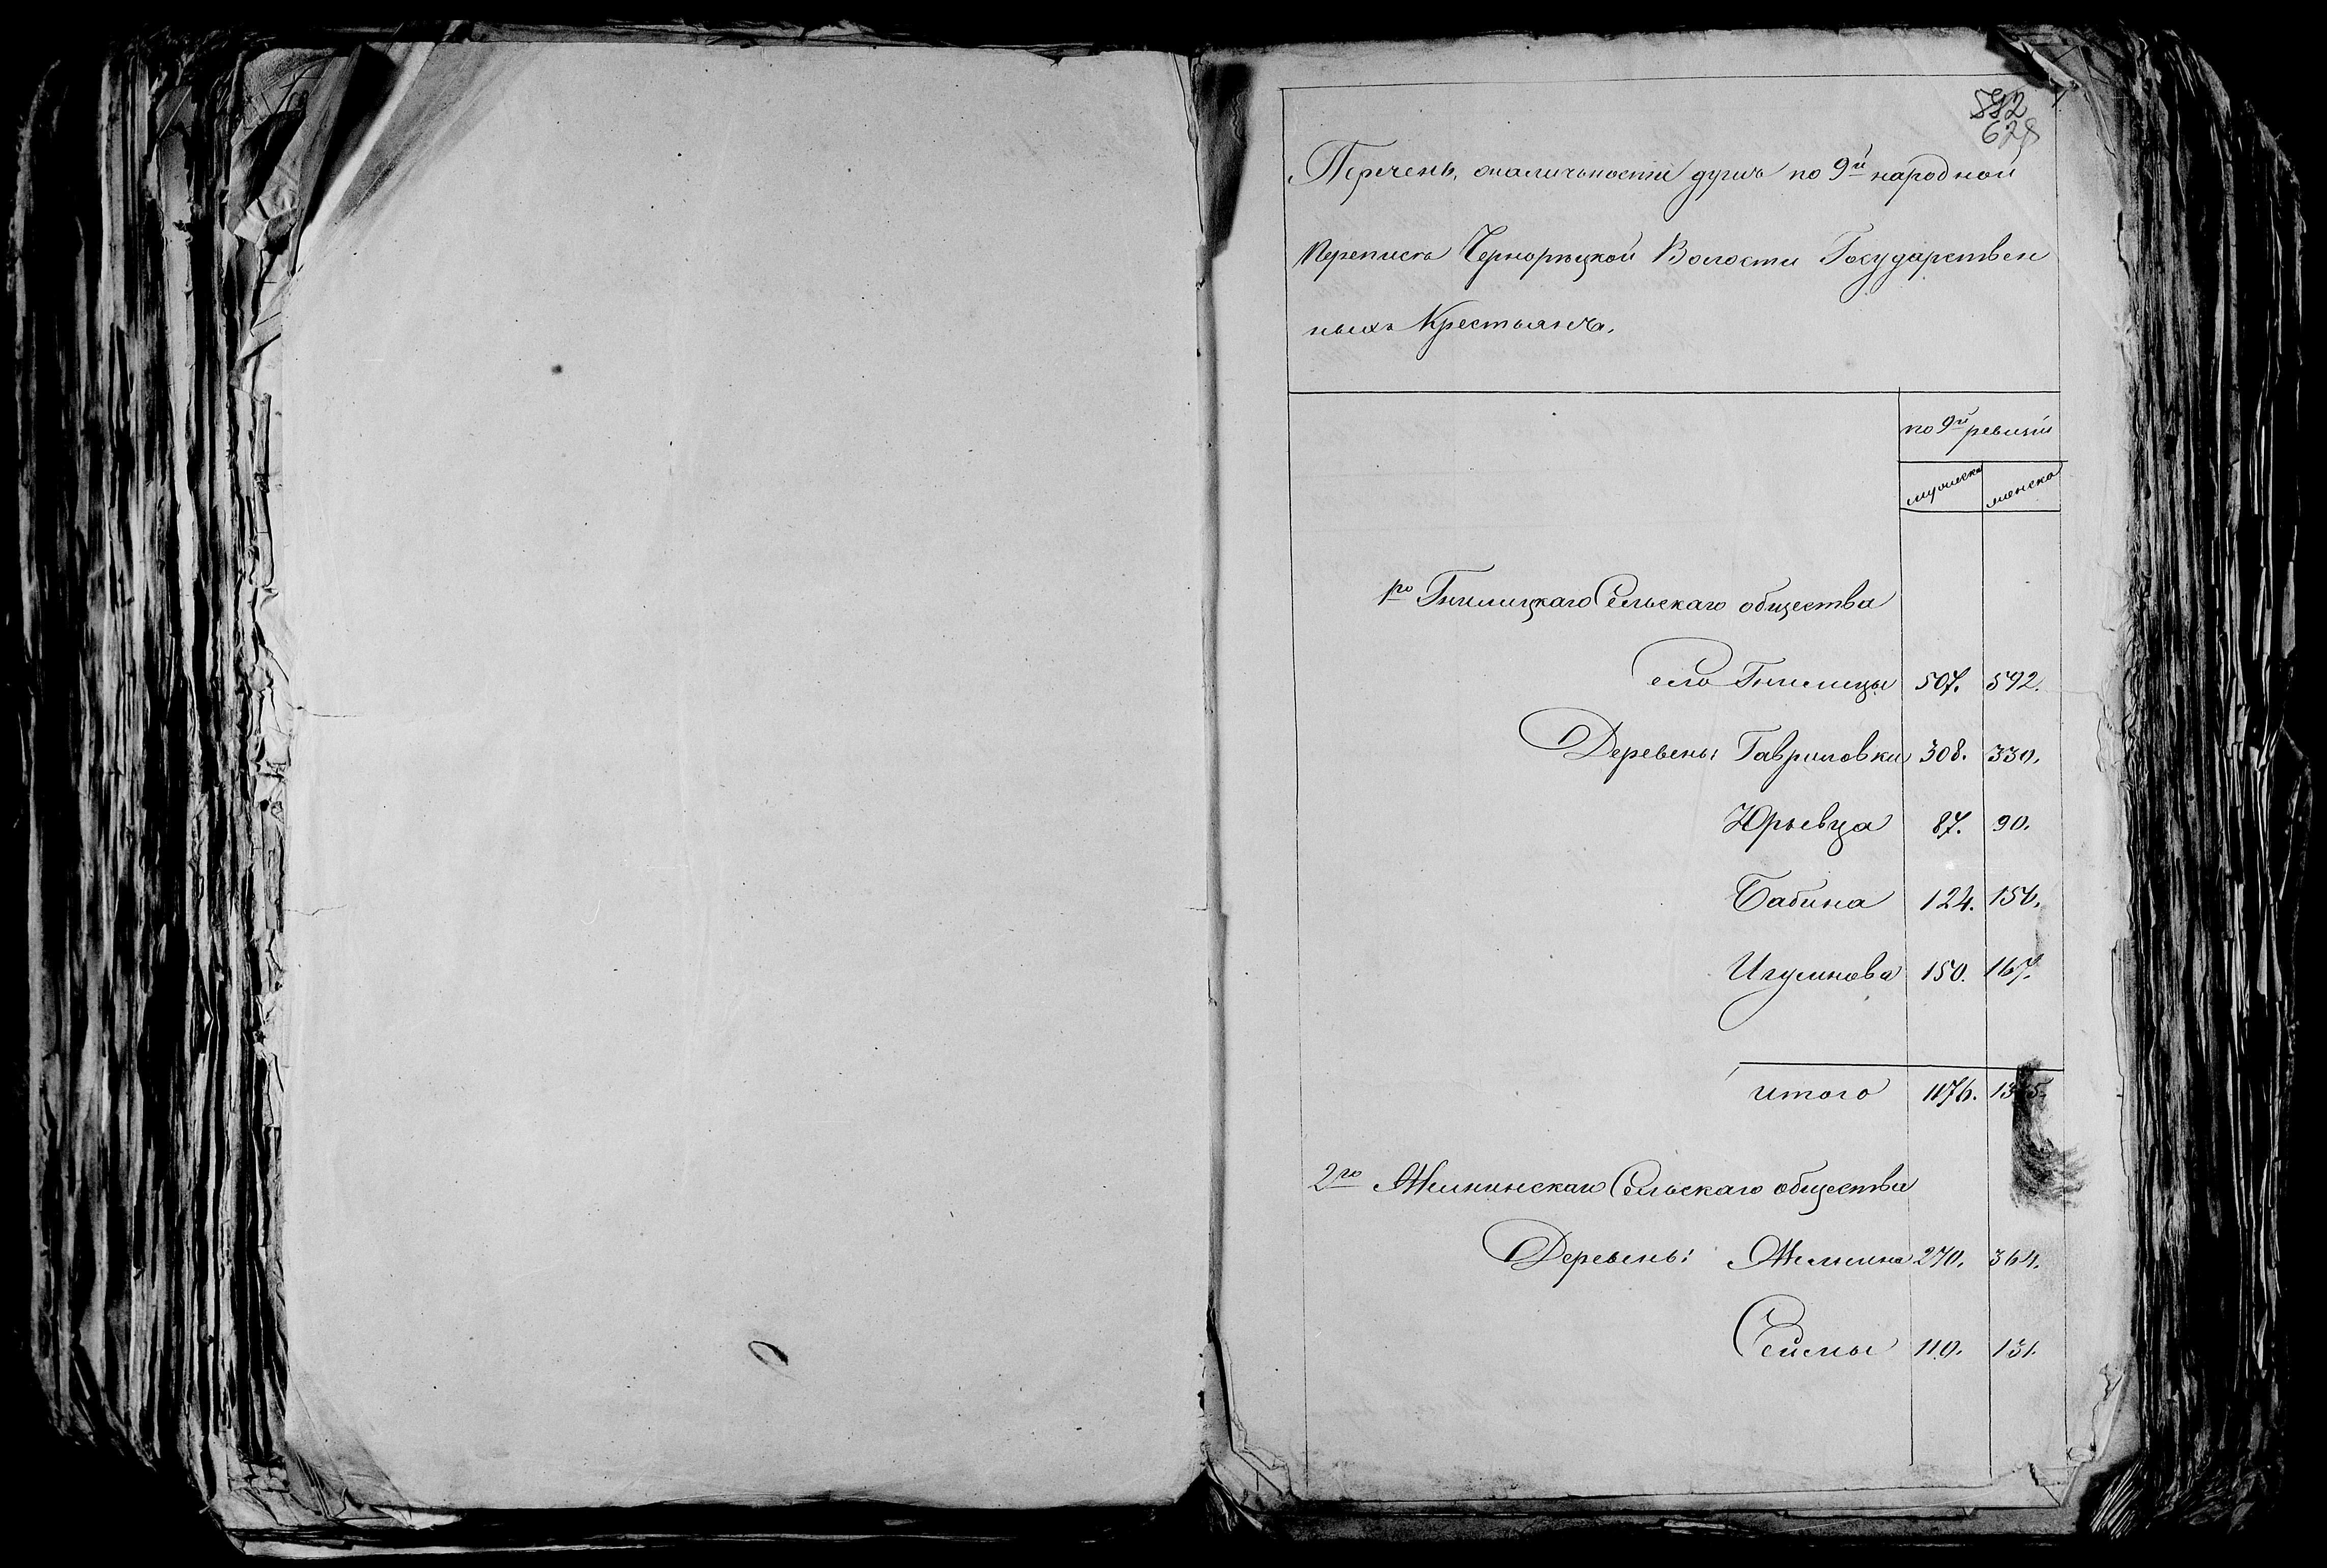 Перечень, оналичьности душъ по 9й народной
Переписи Чернорѣцкой Волости Государствен
ныхъ Крестьянъ.
по 9й ревизіи
мужеска женска
1го Гнилицкаго Сельскаго общества
Село Гнилицы 507. 592.
Деревень: Гавриловки 308. 330.
Юрьевца 87. 90.
Бабина 124. 156.
Игумнова 150. 167.
итого 1176. 1335.
2го Желнинскаго Сельскаго общества
Деревень: Желнина 270. 364.
Сеймы 110. 131.